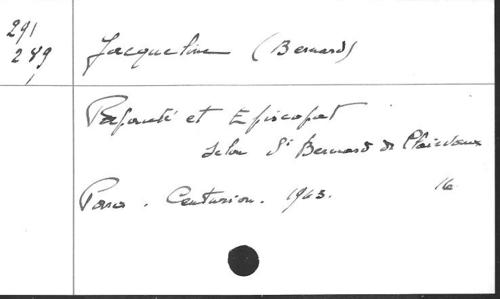 291
289
Jacqueline (Bernard)
Papauté et Episcopat
selon St Bernard de Clairvaux
Paris. Centurion. 1963. 16